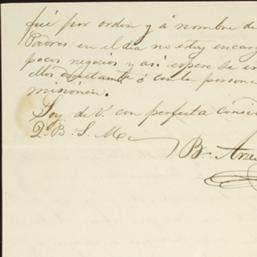 qué por orden y á nombre de
en el dia no estoy encar
pocos negocios y asi espero de
ellos ó con la persona
misión
Soy de V. con perfecta consi
Q. B. S. M.
B. Arri